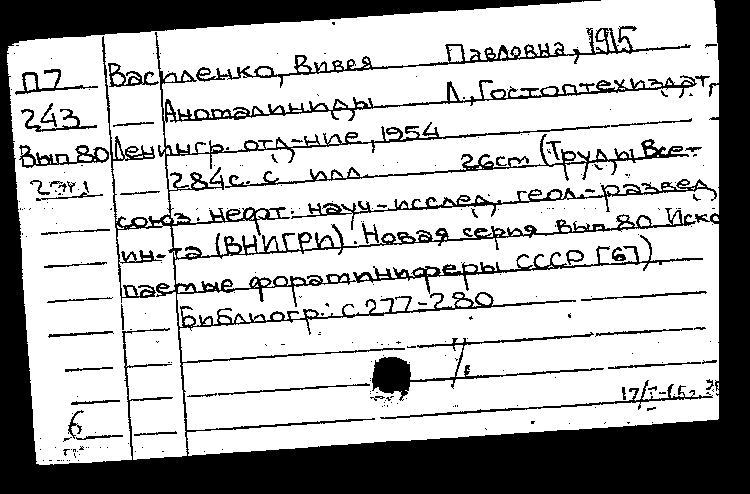 П7 Василенко, Вивея Павловна, 1915
243 Аномалиниды Л., Гостоптехиздат,
Вып 80 Ленингр. отд-ние, 1954
2 экз 284 с. с илл. 26 cm (Труды Все-
союз. нефт. науч-исслед. геол.-развед
ин-та (ВНИГРИ). Новая серия вып 80 Иско
паемые фораминиферы СССР [6]).
Библиогр.: с. 277-280
6